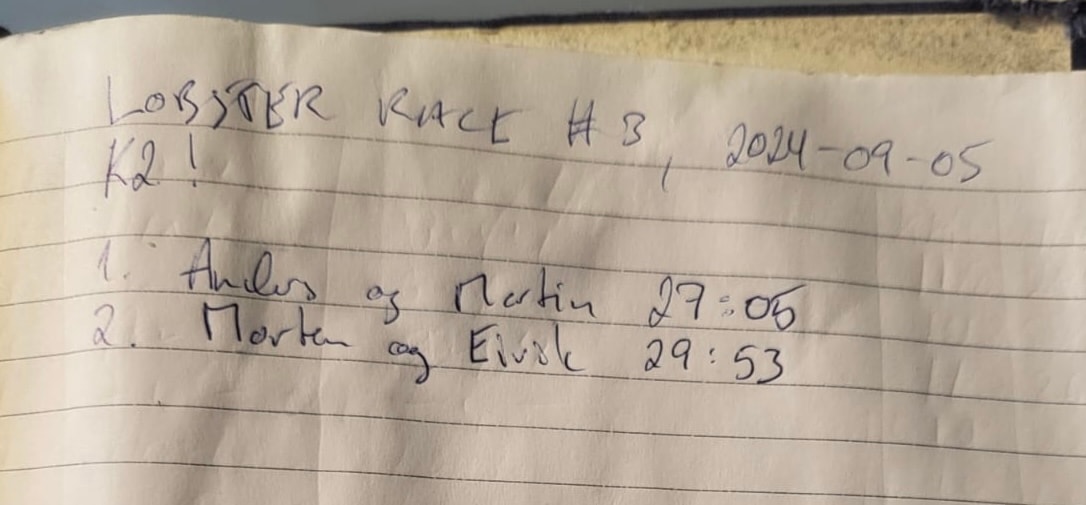 LOBSTER RACE #3, 2024-09-05
K2!
1. Anders og Martin 27:05
2. Morten og Eirik 29:53